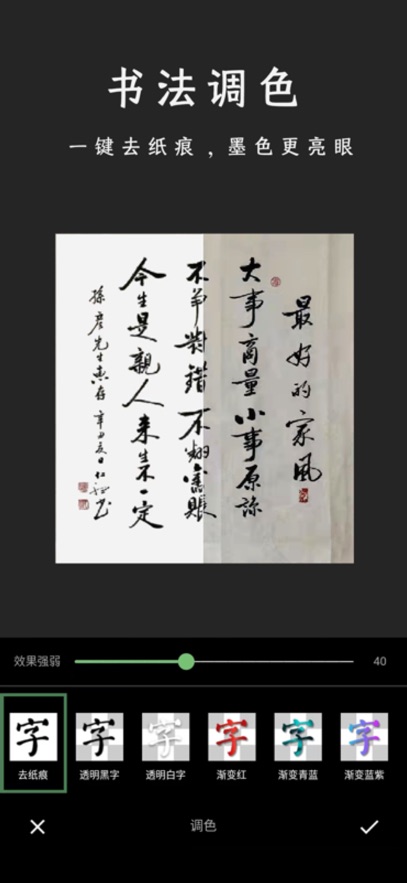 书法调色
一键去纸痕，墨色更亮眼
最好的家风
大事商量小事原谅
不争对错不翻旧账
今生是亲人来生不一定
孫彦先生惠存辛丑夏日
效果强弱
40
去纸痕
透明黑字
透明白字
渐变红
渐变青蓝
渐变蓝紫
字
字
字
字
字
字
调色